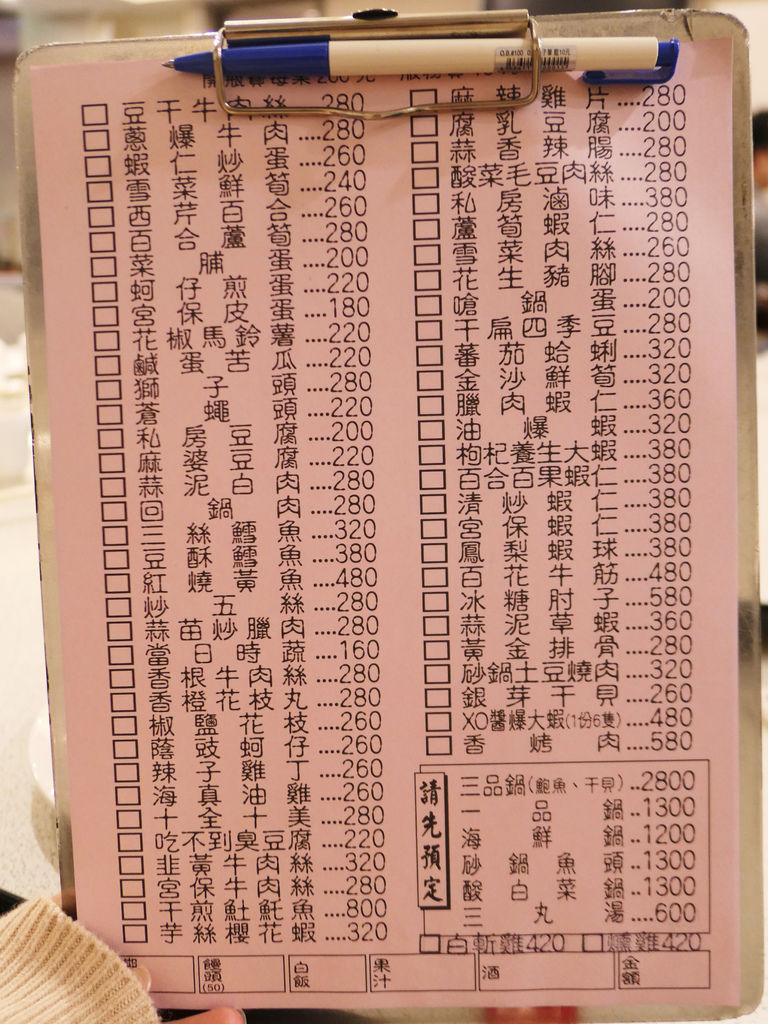 O.B.#100
豆干牛肉絲....280
蔥爆牛肉....280
蝦仁炒蛋....260
雪菜鮮筍....240
西芹百合....260
百合蘆筍....280
菜脯蛋....200
蚵仔煎蛋....220
宮保皮蛋....180
花椒馬鈴薯....220
鹹蛋苦瓜....220
獅子頭....280
蒼蠅頭....220
私房豆腐....200
麻婆豆腐....220
蒜泥白肉....280
回鍋肉....280
三絲鱈魚....320
豆酥鱈魚....380
紅燒黃魚....480
炒五絲....280
蒜苗炒臘肉....280
當日時蔬....160
香根牛肉絲....280
香橙花枝丸....280
椒鹽花枝....260
蔭豉蚵仔....260
辣子雞丁....260
海真油雞....260
十全十美....280
吃不到臭豆腐....220
韭黃牛肉絲....320
宮保牛肉絲....280
干煎魠魠魚....800
芋絲櫻花蝦....320
麻辣雞片....280
腐乳豆腐....200
蒜香辣腸....280
酸菜毛豆肉絲....280
私房滷味....380
蘆筍蝦仁....280
雪菜肉絲....260
花生豬腳....280
嗆鍋蛋....200
干扁四季豆....280
蕃茄蛤蜊....320
金沙鮮筍....320
臘肉蝦仁....360
油爆蝦....320
枸杞養生大蝦....380
百合百果蝦仁....380
清炒蝦仁....380
宮保蝦仁....380
鳳梨蝦球....380
百花牛筋....480
冰糖肘子....580
蒜泥草蝦....360
黃金排骨....280
砂鍋土豆燒肉....320
銀芽干貝....260
XO醬爆大蝦(1份6隻)....480
香烤肉....580
請先預定
三品鍋(鮑魚、干貝)..2800
一品鍋..1300
海鮮鍋..1200
砂鍋魚頭..1300
酸白菜鍋..1300
三丸湯....600
白斬雞420 燻雞420
饅頭(50) 白飯 果汁 酒 金額